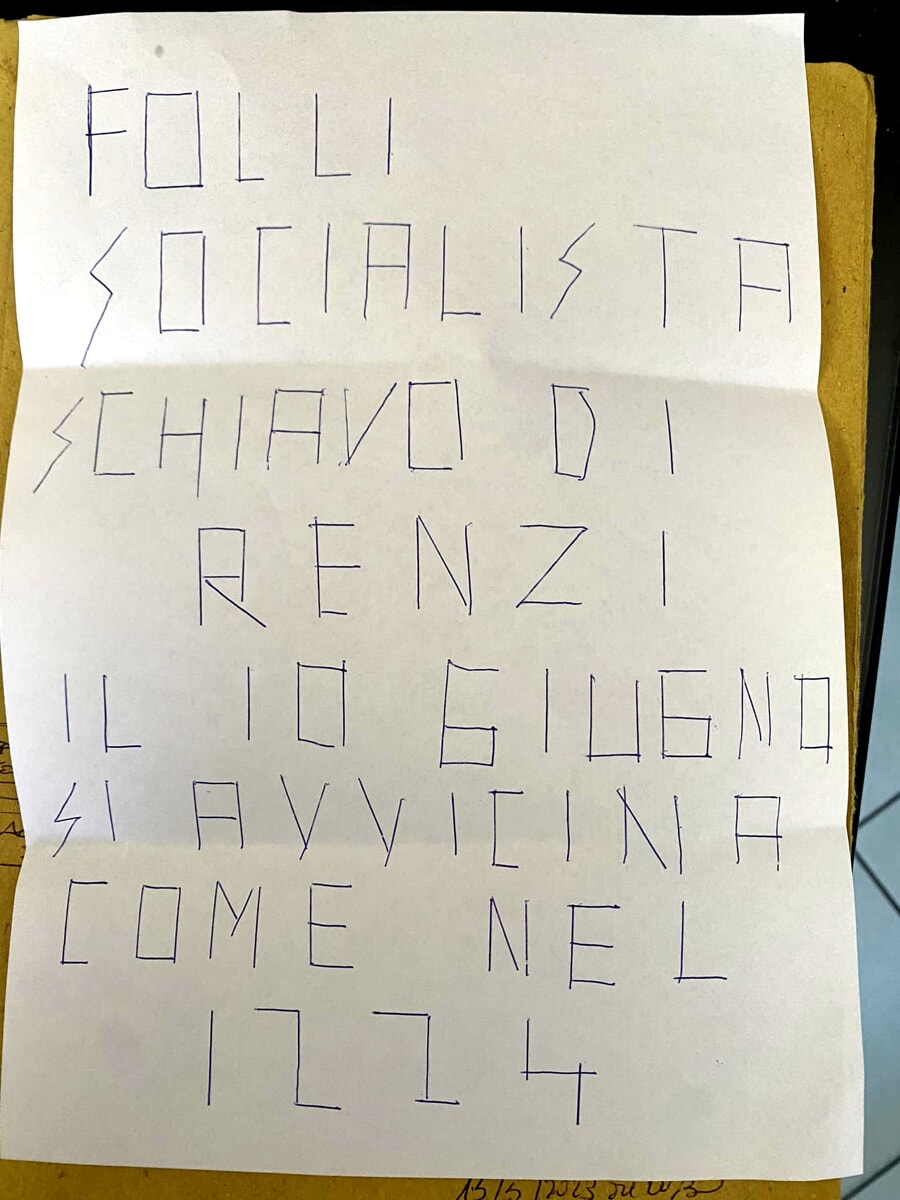 FOLLI
SOCIALISTA
SCHIAVO DI
RENZI
IL 10 GIUGNO
SI AVVICINA
COME NEL
1224